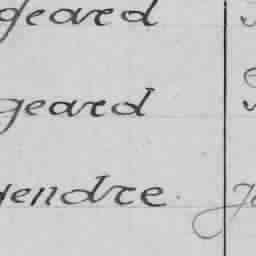 geard
geard
endre